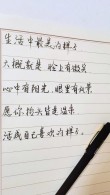 生活中最美的样子
大概就是 脸上有微笑
心中有阳光，眼里有风景
愿你抬头皆是温柔
活成自己喜欢的样子。